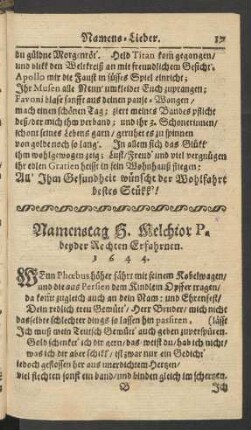 Namens-Lieder. 17
du güldne Morgenröt'. Held Titan kom gegangen/
und blick den Weltkreiß an mit freundlichem Gesicht.
Apollo mit die Faust in süsses Spiel einricht;
Ihr Musen alle Neun umkleider Euch zuprangen;
Favoni blase sanfft aus deinen pause-Wangen/
mach einen schönen Tag; ziert meines Bandes pflicht
deß/der mich ihm verband; und ihr 3. Schwesterinnen/
schont seines Lebens garn/ geruhet es zu spinnen
von golde noch so lang'. In allem sich das Glükk
ihm wohlgewogen zeig: Lust/Freud' und viel vergnügen
ihr edlen Gratien heisst in sein Wohnhauß fliegen;
Au' Ihm Gesundheit wünscht der Wohlfahrt
bestes Stükk'!
Namenstag H. Melchior P.
beyder Rechten Erfahrnen.
1644.
WEnn Phœbus höher fährt mit seinem Kobelwagen/
und die aus Persien dem Kindlein Opffer tragen/
da kömt zugleich auch an dein Nam: und Ehrenfest/
Dein redlich treu Gemüt/ Herr Bruder/ mich nicht
dasselbe schlechter dings so lassen hin pasiren. (lässt
Ich muß mein Teutsch Gemüt' auch geben zuverspüren.
Geld schenket' ich dir gern/ das weist du/hab ich nicht/
was ich dir aber schikk'/ ist zwar nur ein Gedicht
jedoch geflossen her aus unerdichtem Hertzen/
viel flechten sonst ein band/und binden gleich im schertzen.
B Ich